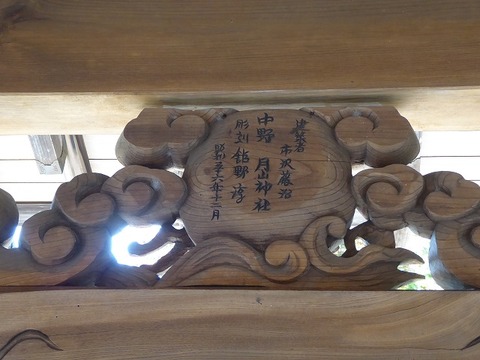 建築者
市沢藤沼
中野 月山神社
彫刻 飯野淳
昭和五十六年十二月